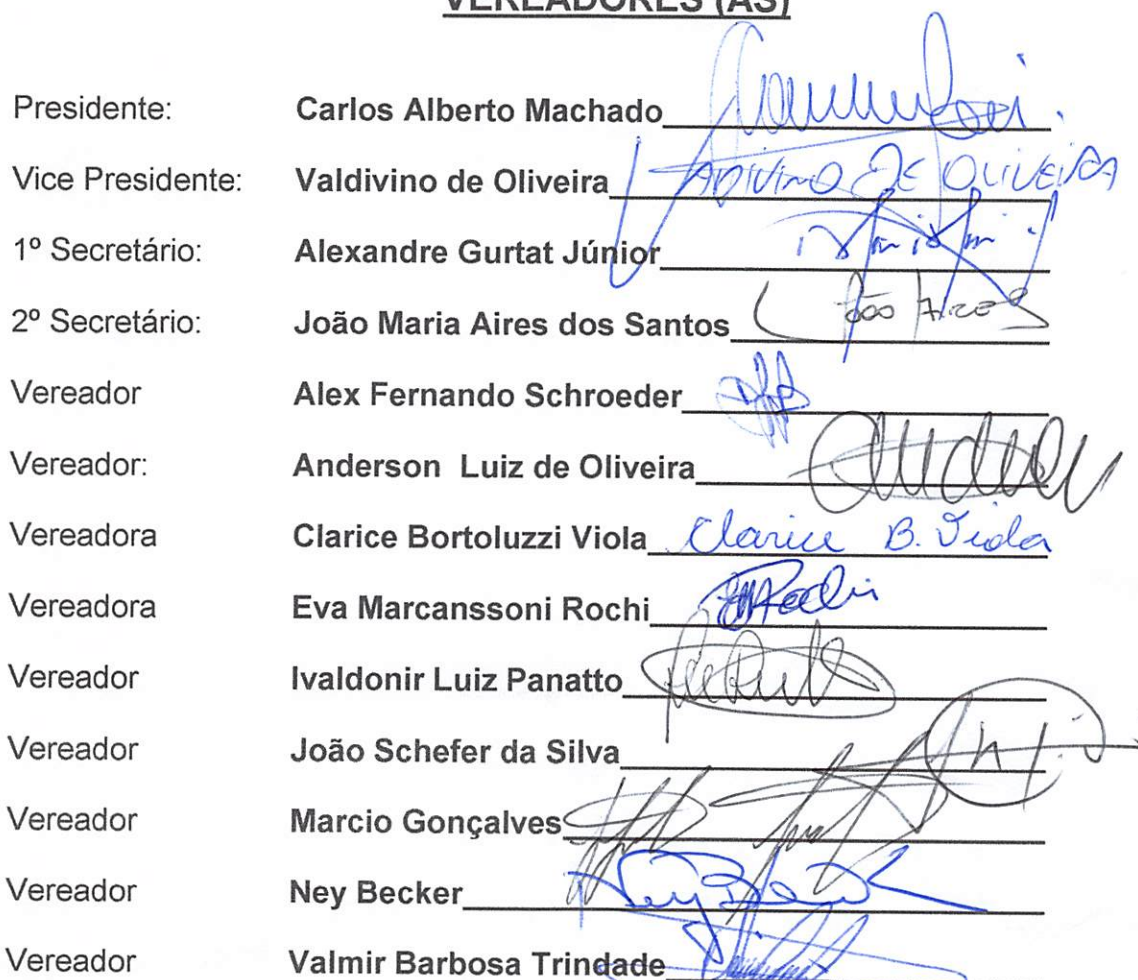 VEREADORES (AS)
Presidente: Carlos Alberto Machado
Vice Presidente: Valdivino de Oliveira VALDIVINO DE OLIVEIRA
1º Secretário: Alexandre Gurtat Júnior
2º Secretário: João Maria Aires dos Santos João Aires
Vereador Alex Fernando Schroeder
Vereador: Anderson Luiz de Oliveira
Vereadora Clarice Bortoluzzi Viola Clarice B. Viola
Vereadora Eva Marcanssoni Rochi EMRochi
Vereador Ivaldonir Luiz Panatto
Vereador João Schefer da Silva
Vereador Marcio Gonçalves
Vereador Ney Becker Ney Becker
Vereador Valmir Barbosa Trindade